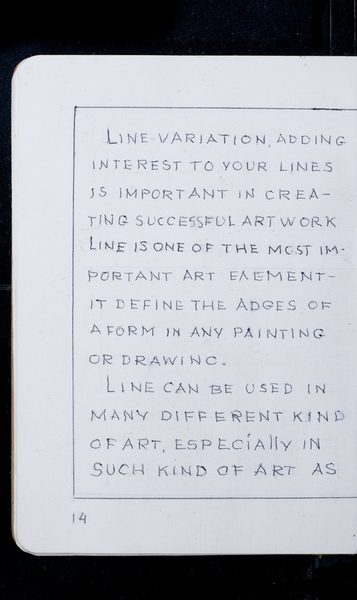 LINE-VARIATION, ADDING
INTEREST TO YOUR LINES
IS IMPORTANT IN CREA-
TING SUCCESSFUL ART WORK
LINE IS ONE OF THE MOST IM-
PORTANT ART ELEMENT-
IT DEFINE THE ADGES OF
A FORM IN ANY PAINTING
OR DRAWING.
LINE CAN BE USED IN
MANY DIFFERENT KIND
OF ART, ESPECIAllY IN
SUCH KIND OF ART AS
14